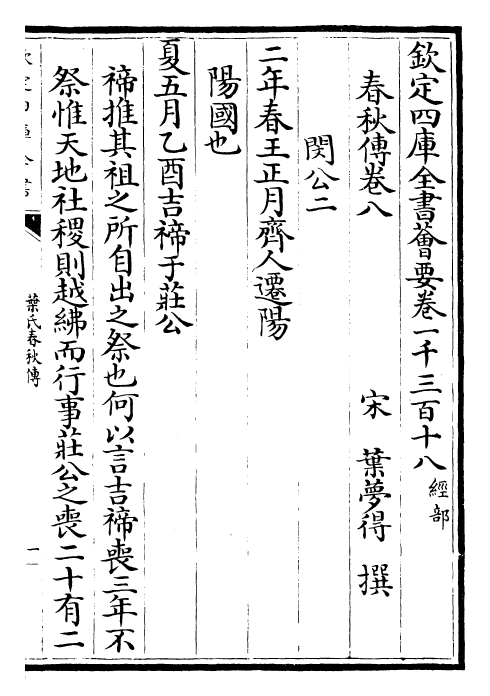 欽定四庫全書薈要卷一千三百十八 經部
春秋傳卷八 宋 葉夢得 撰
閔公二
二年春王正月齊人遷陽
陽國也
夏五月乙酉吉禘于莊公
禘推其祖之所自出之祭也何以言吉禘喪三年不
祭惟天地社稷則越紼而行事莊公之喪二十有二
葉氏春秋傳
一